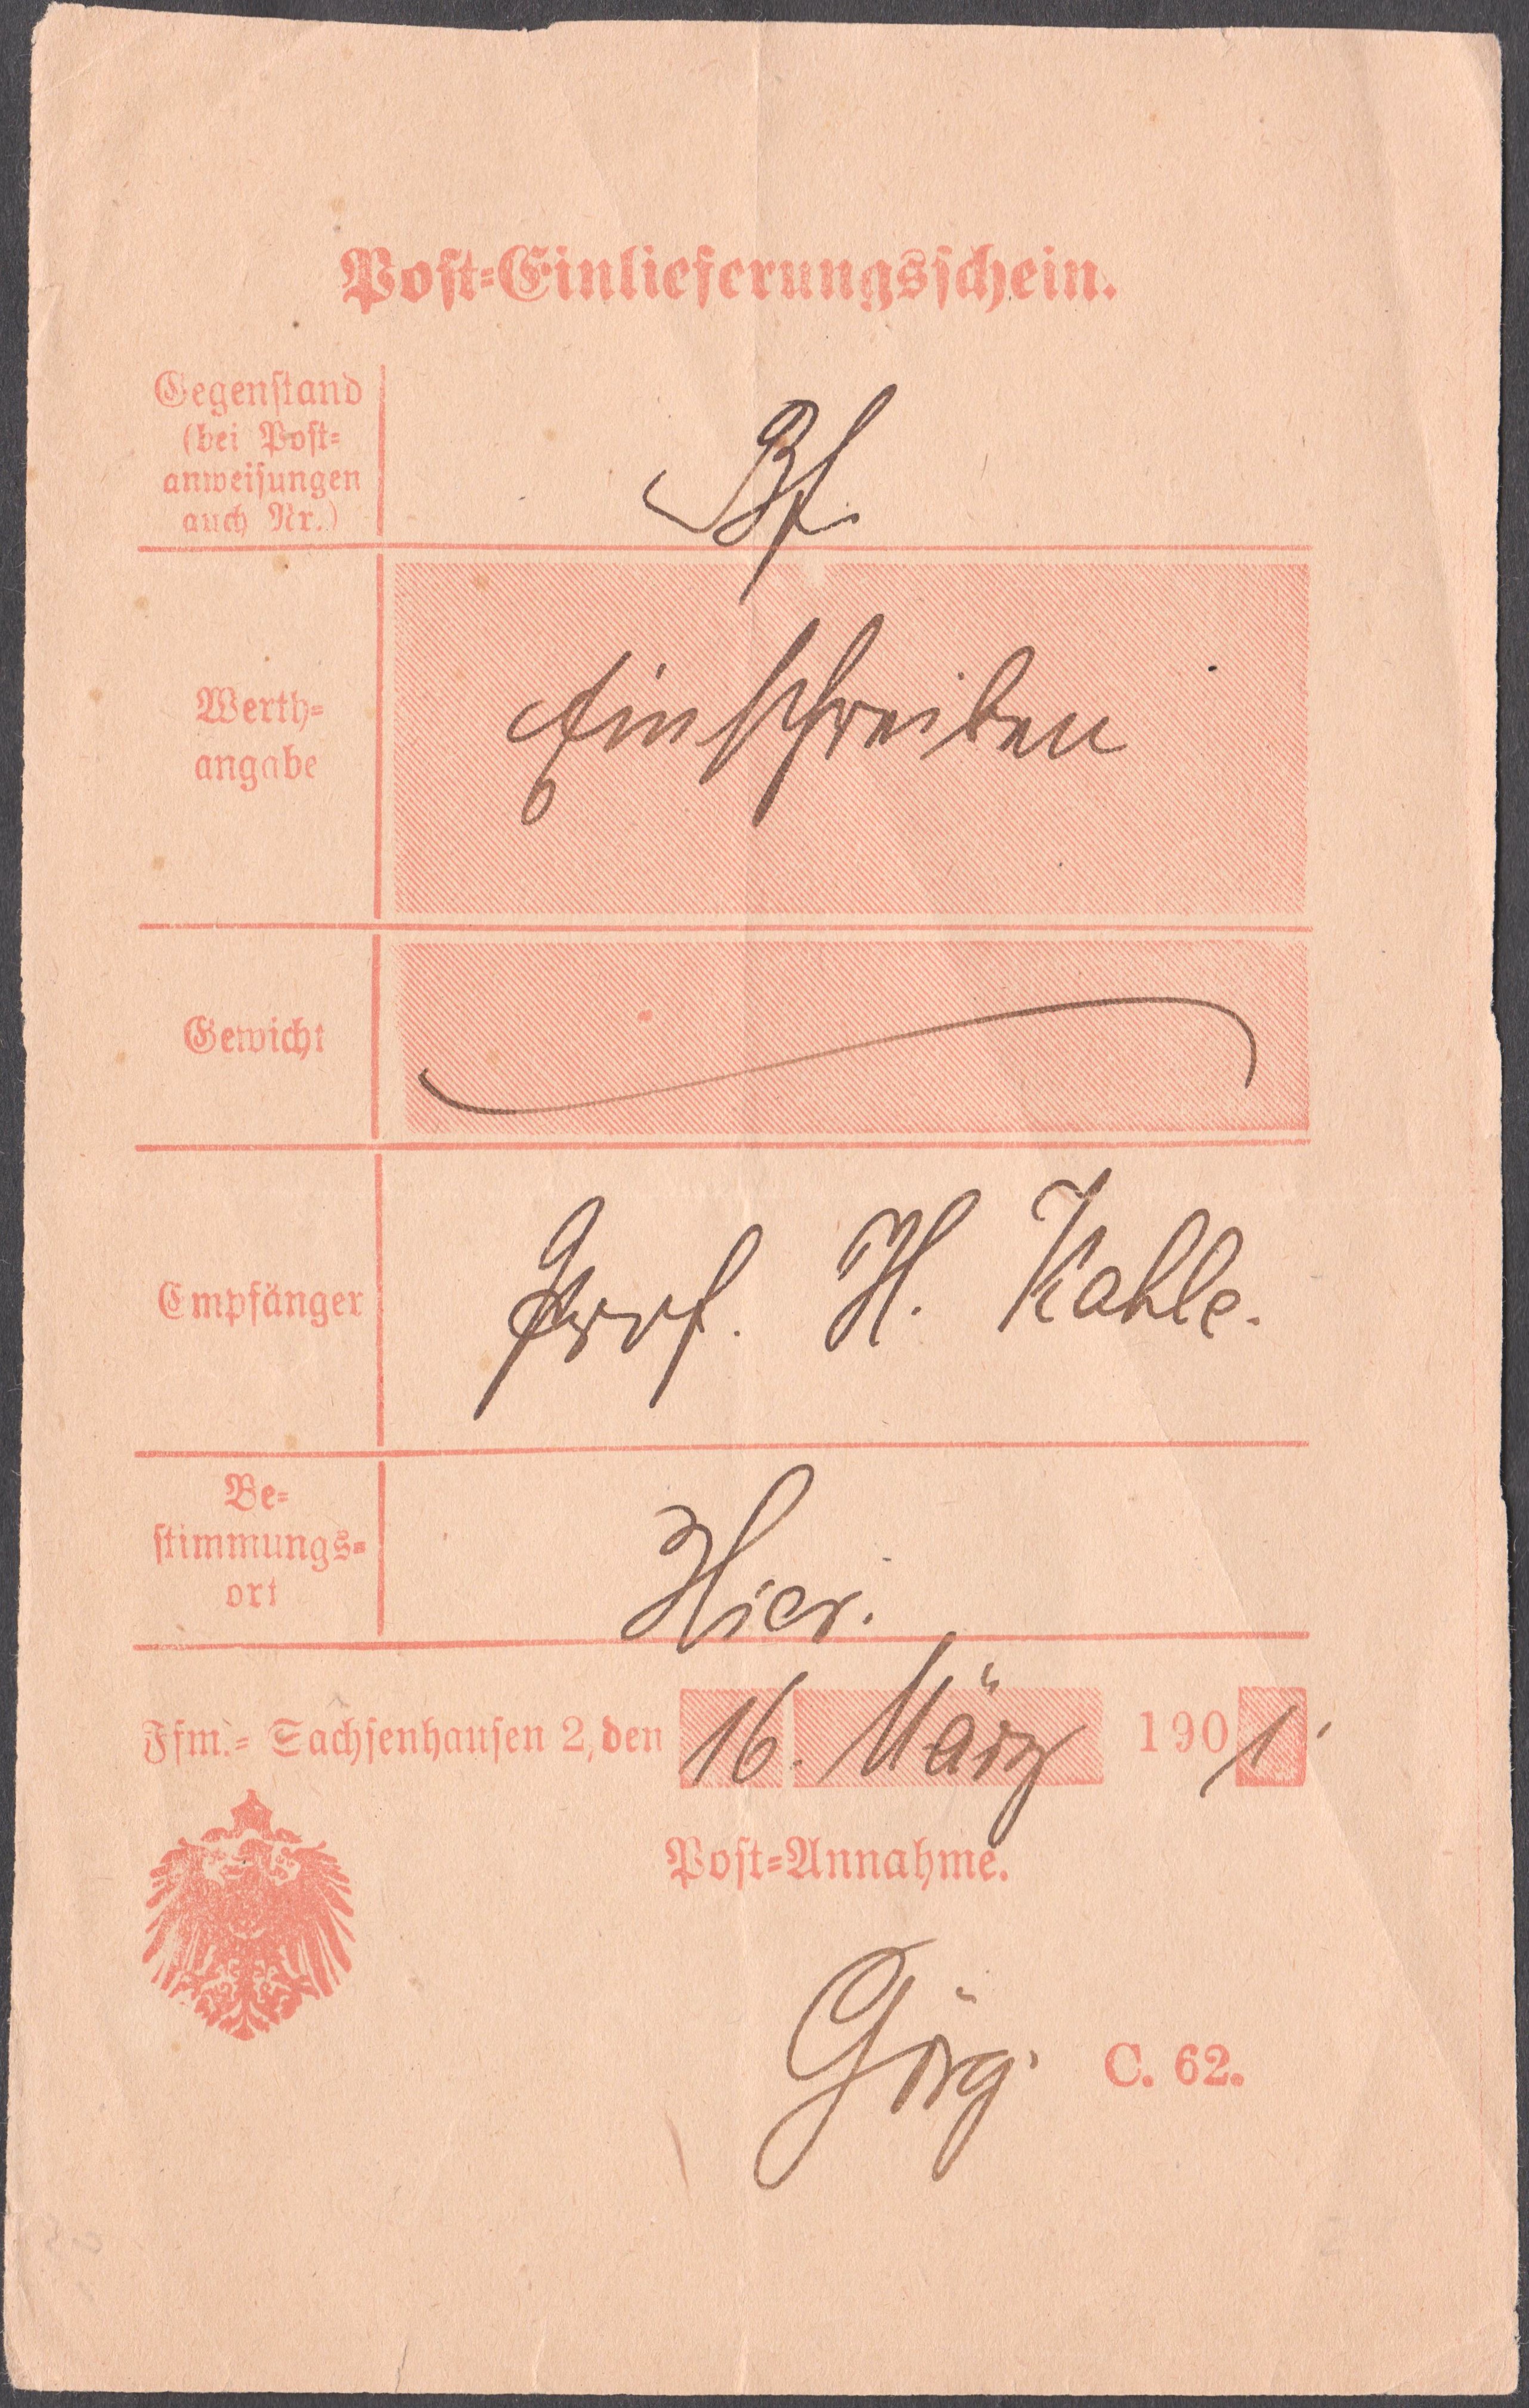 Post-Einlieferungsschein.
Gegenstand
(bei Post-
anweisungen
auch Nr.)
Bf.
Werth-
angabe
Einschreiben
Gewicht
Empfänger
Prof. H. Kahle.
Be-
stimmungs-
ort
Hier.
Ffm.- Sachsenhausen 2, den 16. März 1901.
Post-Annahme.
Görg.
C. 62.